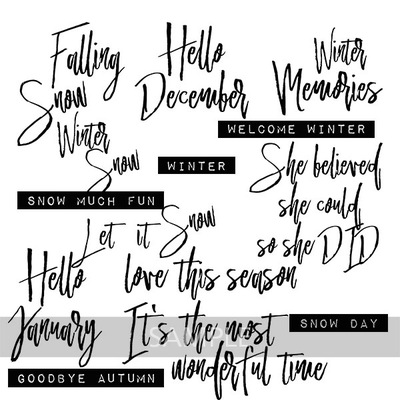 Falling
Snow
Hello
December
Winter
Memories
WELCOME WINTER
Winter
Snow
WINTER
SNOW MUCH FUN
She believed
she could,
so she DID
Let it Snow
Hello
January
love this season
It's the most
wonderful time
SNOW DAY
SAMPLE
GOODBYE AUTUMN